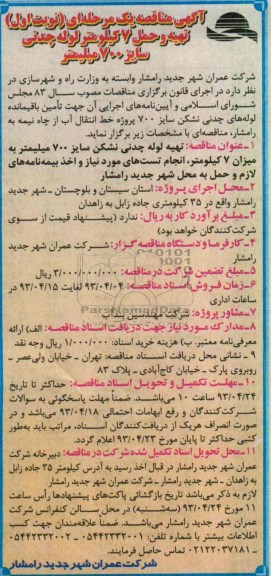 آگهی مناقصه یک مرحله‌ای (نوبت اول)
تهیه و حمل ۷ کیلومتر لوله چدنی
سایز ۷۰۰ میلیمتر
شرکت عمران شهر جدید رامشار وابسته به وزارت راه و شهرسازی در
نظر دارد در اجرای قانون برگزاری مناقصات مصوب سال ۸۳ مجلس
شورای اسلامی و آیین‌نامه‌های اجرایی آن جهت تأمین باقیمانده
لوله‌های چدنی نشکن سایز ۷۰۰ پروژه خط انتقال آب از چاه نیمه به
رامشار، مناقصه‌ای با مشخصات زیر برگزار نماید.
۱ـ عنوان مناقصه: تهیه لوله چدنی نشکن سایز ۷۰۰ میلیمتر به
میزان ۷ کیلومتر، انجام تست‌های مورد نیاز و اخذ بیمه‌نامه‌های
لازم و حمل به محل شهر جدید رامشار
۲ـ محل اجرای پروژه: استان سیستان و بلوچستان ـ شهر جدید
رامشار واقع در ۳۵ کیلومتری جاده زابل به زاهدان
۳ـ مبلغ برآورد کار به ریال: ندارد (پیشنهاد قیمت از سوی
شرکت‌کنندگان خواهد بود)
۴ـ کارفرما و دستگاه مناقصه گزار: شرکت عمران شهر جدید
رامشار
۵ـ مبلغ تضمین شرکت در مناقصه: ۳/۰۰۰/۰۰۰/۰۰۰ ریال
۶ـ زمان فروش اسناد مناقصه: ۹۳/۰۴/۰۴ لغایت ۹۳/۰۴/۱۵ در
ساعات اداری
۷ـ مشاور پروژه: شرکت مهندسین
۸ـ مدارک مورد نیاز جهت دریافت اسناد مناقصه: الف) ارائه
معرفی‌نامه معتبر. ب) هزینه خرید اسناد: ۱/۰۰۰/۰۰۰ ریال وجه نقد
۹ ـ نشانی محل دریافت اسناد مناقصه: تهران ـ خیابان ولی‌عصر ـ
روبروی پارک ـ خیابان کاج‌آبادی ـ پلاک ۸۳
۱۰ـ مهلت تکمیل و تحویل اسناد مناقصه: حداکثر تا تاریخ
۹۳/۰۴/۲۴ ساعت ۱۰ می‌باشد. ضمناً مهلت پاسخگوئی به سوالات
شرکت‌کنندگان و رفع ابهامات احتمالی ۹۳/۰۴/۱۸ می‌باشد و در
صورت انصراف هریک از دریافت‌کنندگان اسناد، مراتب باید به‌طور
کتبی حداکثر تا پایان مورخ ۹۳/۰۴/۲۳ اعلام گردد.
۱۱ـ محل تحویل اسناد تکمیل شده شرکت در مناقصه: دبیرخانه شرکت
عمران شهر جدید رامشار در قبال اخذ رسید به آدرس کیلومتر ۳۵ جاده زابل
به زاهدان ـ شهر جدید رامشار ـ شرکت عمران شهر جدید رامشار
لازم به ذکر می‌باشد تاریخ بازگشائی پاکت‌های پیشنهادها رأس ساعت
۱۱ مورخ ۹۳/۰۴/۲۴ (سه‌شنبه) در محل سالن کنفرانس شرکت
عمران شهر جدید رامشار می‌باشد. ضمناً علاقه‌مندان جهت کسب
اطلاعات بیشتر با شماره تلفن: ۰۵۴۴۲۳۳۲۰۰۱ ـ ۰۵۴۴۲۳۳۲۰۰۲
ـ ۰۲۱۲۲۰۳۷۱۸۱ تماس حاصل فرمایند.
شرکت عمران شهر جدید رامشار